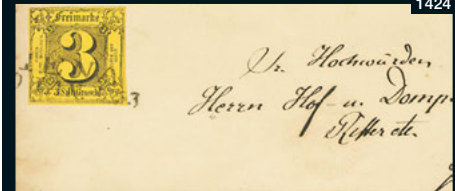 1424
Freimarke
3
3
Sr. Hochwürden
Herrn Hof- u. Domp
Ritter etc.